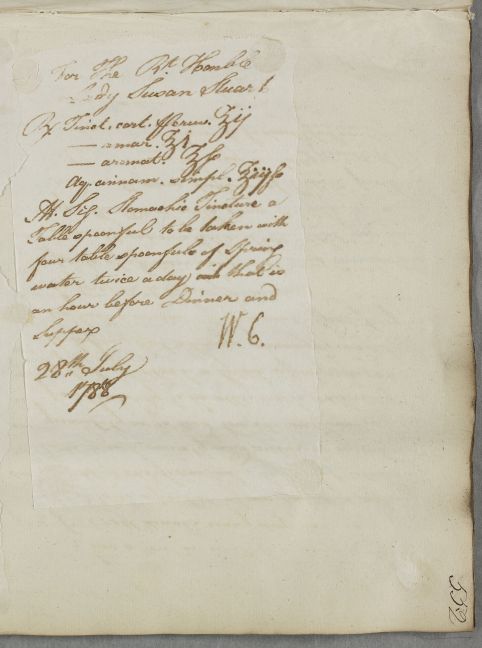 For The Rt. Honble
Lady Susan Stuart
Rx Tinct. cort. peruv. ℥ij
— amar. ℥j
— aromat. ℥ſs
Aq. cinnam. simpl. ℥iijſs
M. Sig. Stomachic Tincture a
Table spoonful to be taken with
four table spoonfuls of Spring
water twice a day that is
an hour before Dinner and
Supper
W. C.
28th July
1788
552